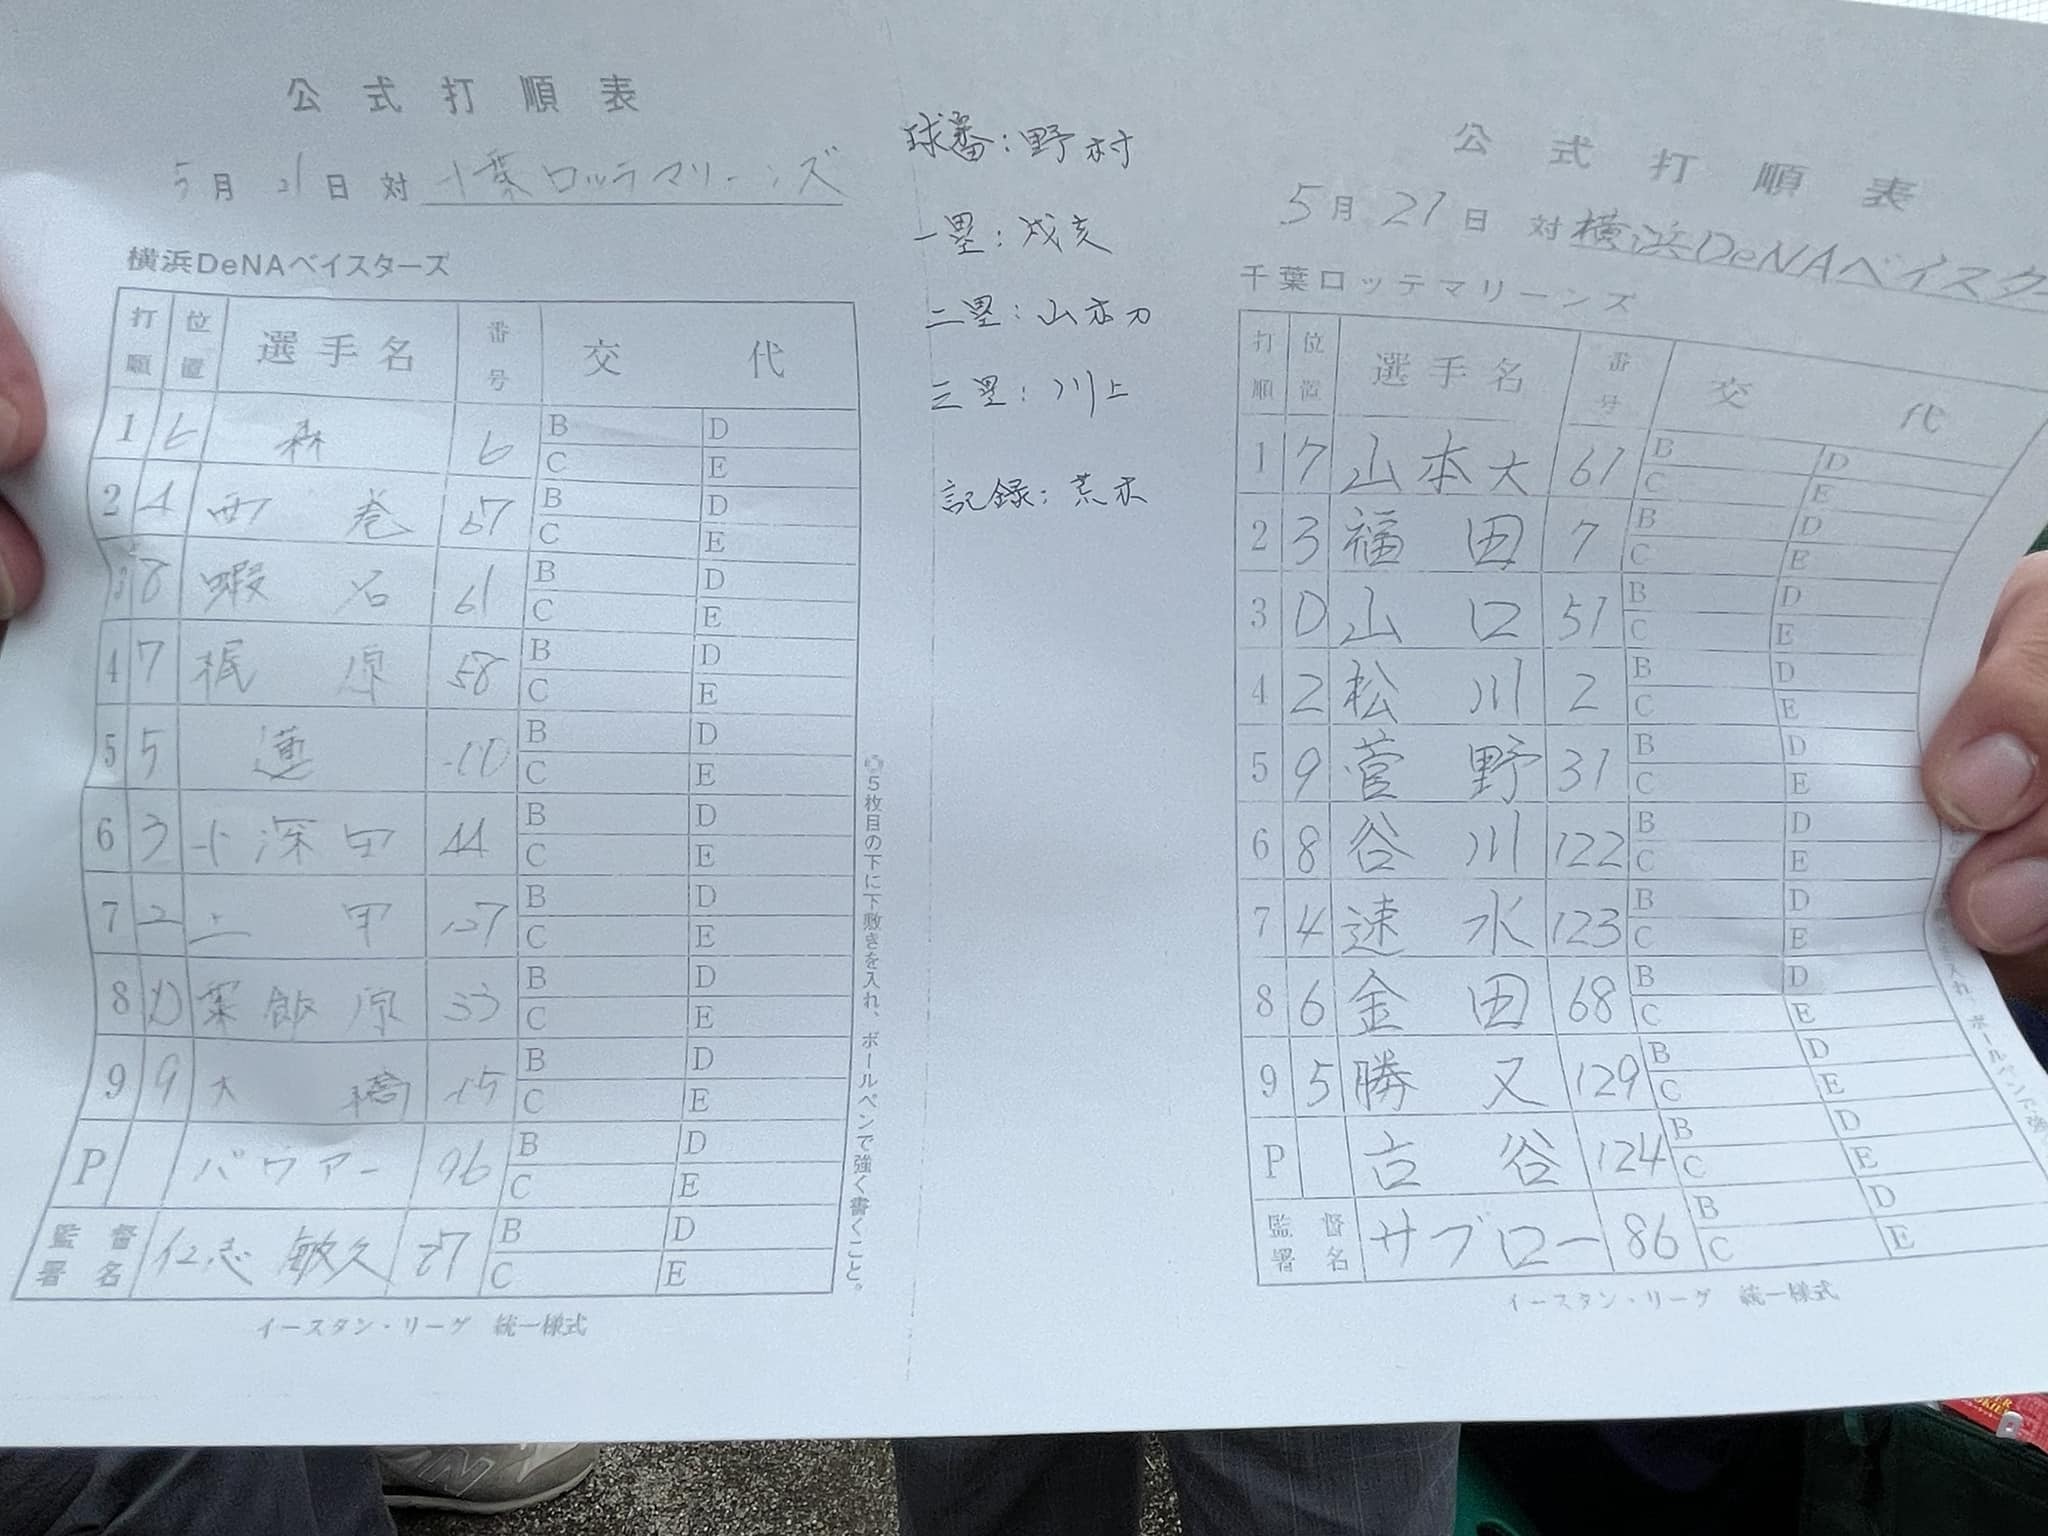 公式打順表
5月21日 対 千葉ロッテマリーンズ
横浜DeNAベイスターズ
打順 位置 選手名 番号 交代
1 6 森 6 B D
C E
2 4 西巻 67 B D
C E
3 8 蝦名 61 B D
C E
4 7 梶原 58 B D
C E
5 5 蓮 100 B D
C E
6 3 小深田 44 B D
C E
7 2 上甲 127 B D
C E
8 D 粟飯原 33 B D
C E
9 9 大橋 B D
C E
P パウアー 96 B D
C E
監督署名 仁志敏久 B D
C E
イースタン・リーグ 統一様式
◎5枚目の下に下敷きを入れ、ボールペンで強く書くこと。
球審:野村
一塁:戌亥
二塁:山本力
三塁:川上
記録:荒木
公式打順表
5月21日 対 横浜DeNAベイスター
千葉ロッテマリーンズ
打順 位置 選手名 番号 交代
1 7 山本大 61 B D
C E
2 3 福田 7 B D
C E
3 D 山口 51 B D
C E
4 2 松川 2 B D
C E
5 9 菅野 31 B D
C E
6 8 谷川 122 B D
C E
7 4 速水 123 B D
C E
8 6 金田 68 B D
C E
9 5 勝又 129 B D
C E
P 古谷 124 B D
C E
監督署名 サブロー 86 B D
C E
イースタン・リーグ 統一様式
入れ、ボールペンで強